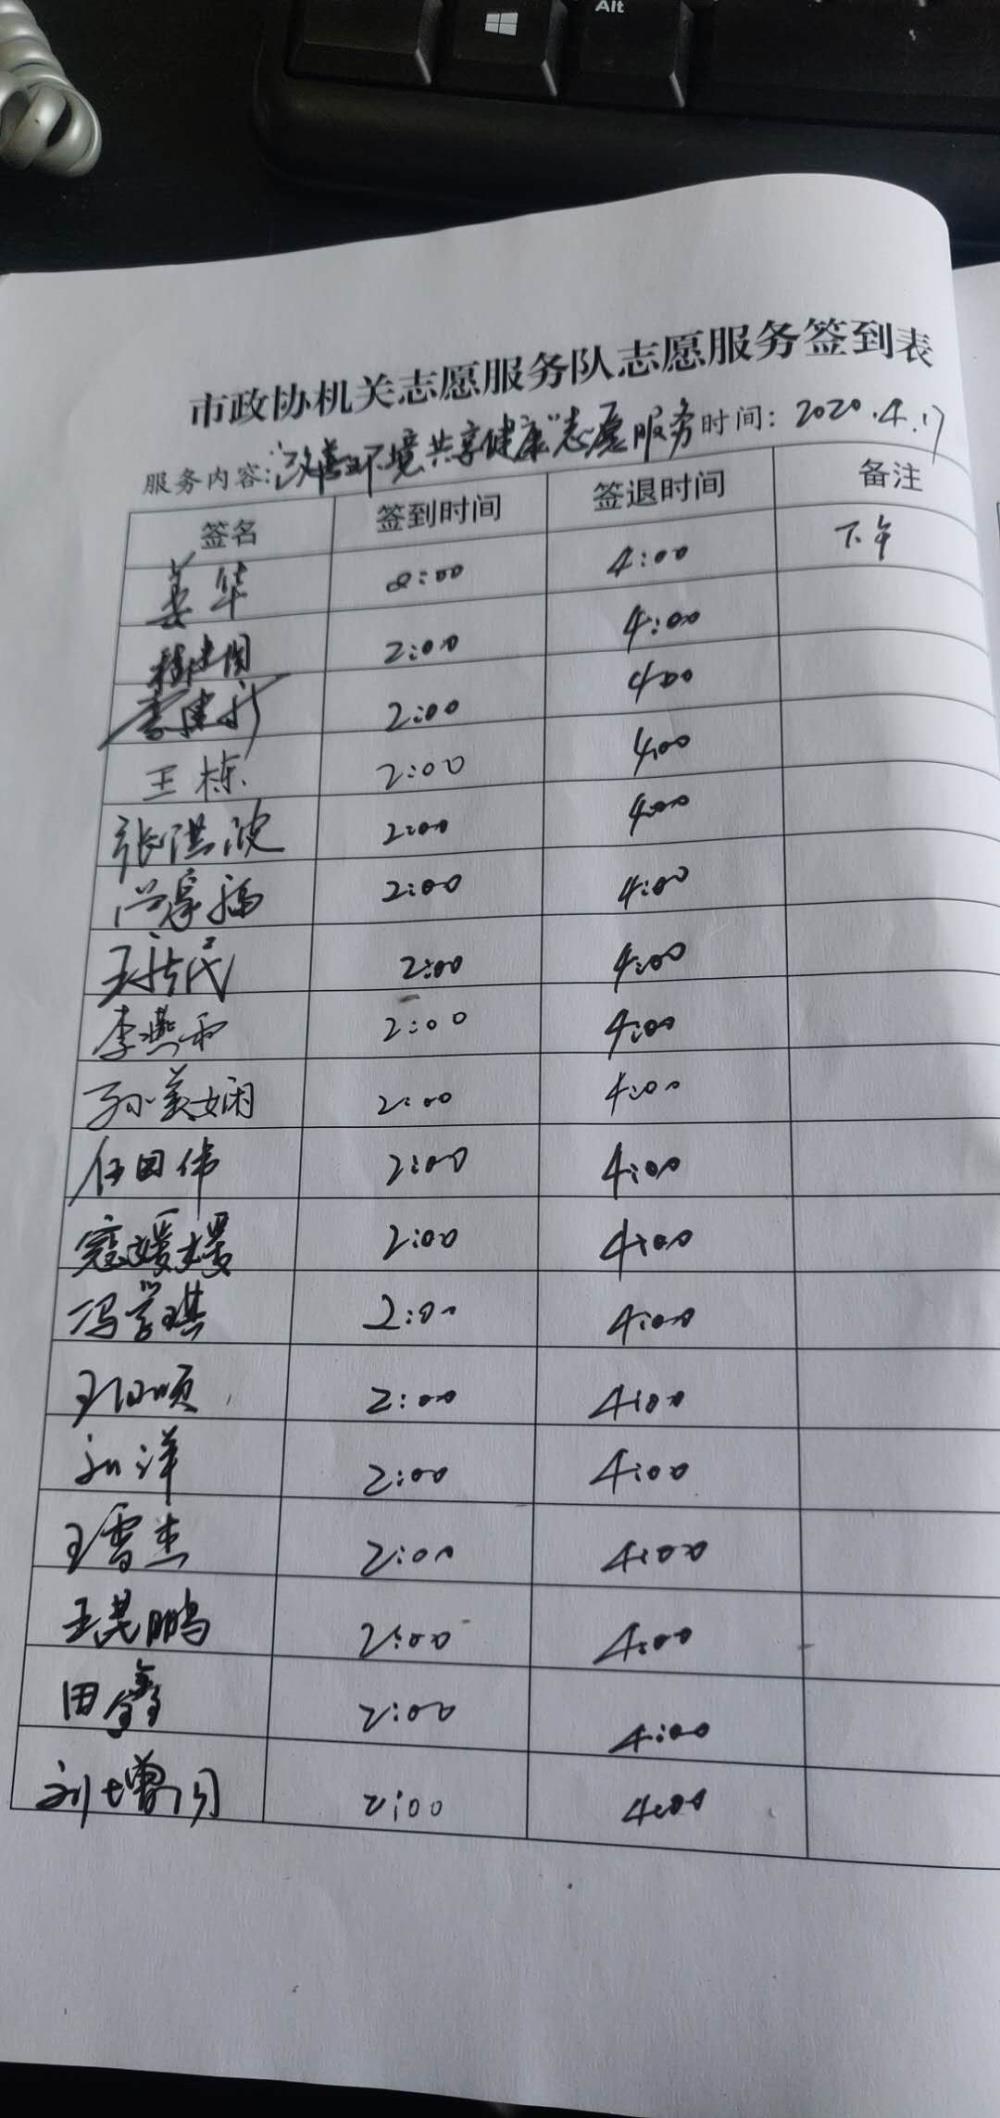 Alt
市政协机关志愿服务队志愿服务签到表
服务内容:“改善环境共享健康”志愿服务时间: 2020.4.17
签名 签到时间 签退时间 备注
姜华 2:00 4:00 下午
2:00 4:00
2:00 4:00
王栋 2:00 4:00
张洪波 2:00 4:00
2:00 4:00
2:00 4:00
李燕 2:00 4:00
孙美娴 2:00 4:00
任国伟 2:00 4:00
寇媛媛 2:00 4:00
冯学琪 2:00 4:00
2:00 4:00
洋 2:00 4:00
王雪杰 2:00 4:00
王昆鹏 2:00 4:00
田鑫 2:00 4:00
刘增 2:00 4:00